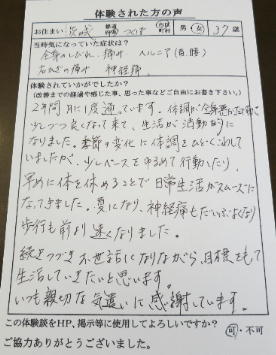 体験された方の声
お住まい 茨城 都道府県 つくば 市区町村 男・女 37歳
当時気になっていた症状は?
全身のしびれ、痛み ヘルニア(首、腰)
右ひざの痛み 神経痛
体験していかがでしたか?
(改善までの経過や感じた事、思った事などご自由にお書き下さい。)
2年間、月に1度通っています。体調が
少しづつ良くなって来て、生活が活動的に
なりました。季節の変化に体調を
していましたが、少しペースをゆるめて行動したり、
早めに体を休めることで日常生活がスムーズに
なってきました。夏になり、神経痛もだいぶよくなり
歩行も前より速くなりました。
続きお世話になりながら、目標をもって
生活していきたいと思います。
いつも親切な気遣いに感謝しています。
この体験談をHP、掲示等に使用してよろしいですか?
可・不可
ご協力ありがとうございました。